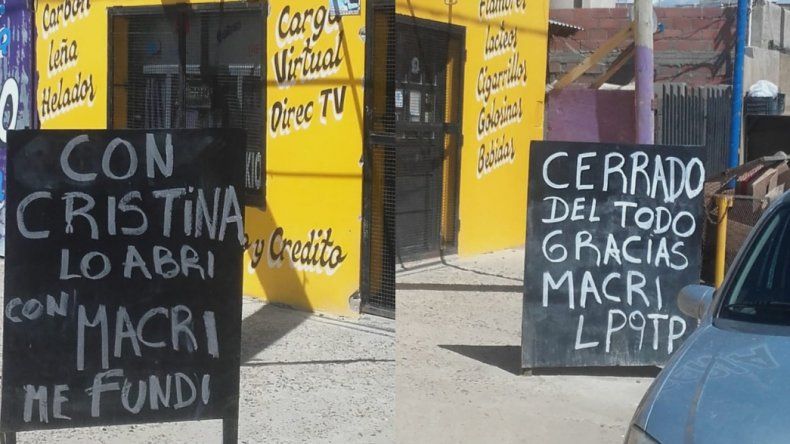 Carbón
Leña
Helados
Cargo
Virtual
Direc TV
y Credito
KIO
CON
CRISTINA
LO ABRI
CON MACRI
ME FUNDI
lacteos
Cigarrillos
Golosinas
Bebidas
CERRADO
DEL TODO
GRACIAS
MACRI
LP9TP